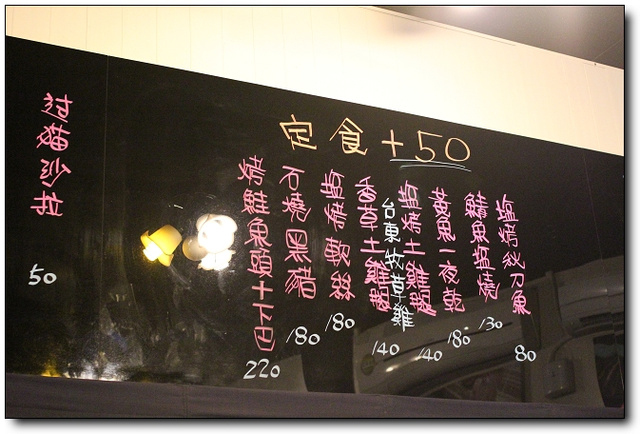 定食+50
塩烤秋刀魚
80
鯖魚塩燒
130
黃魚一夜乾
180
塩烤土雞腿
140
台東牧草雞
香草土雞腿
140
塩烤軟絲
180
石燒黑豬
180
烤鮭魚頭+下巴
220
过猫沙拉
50